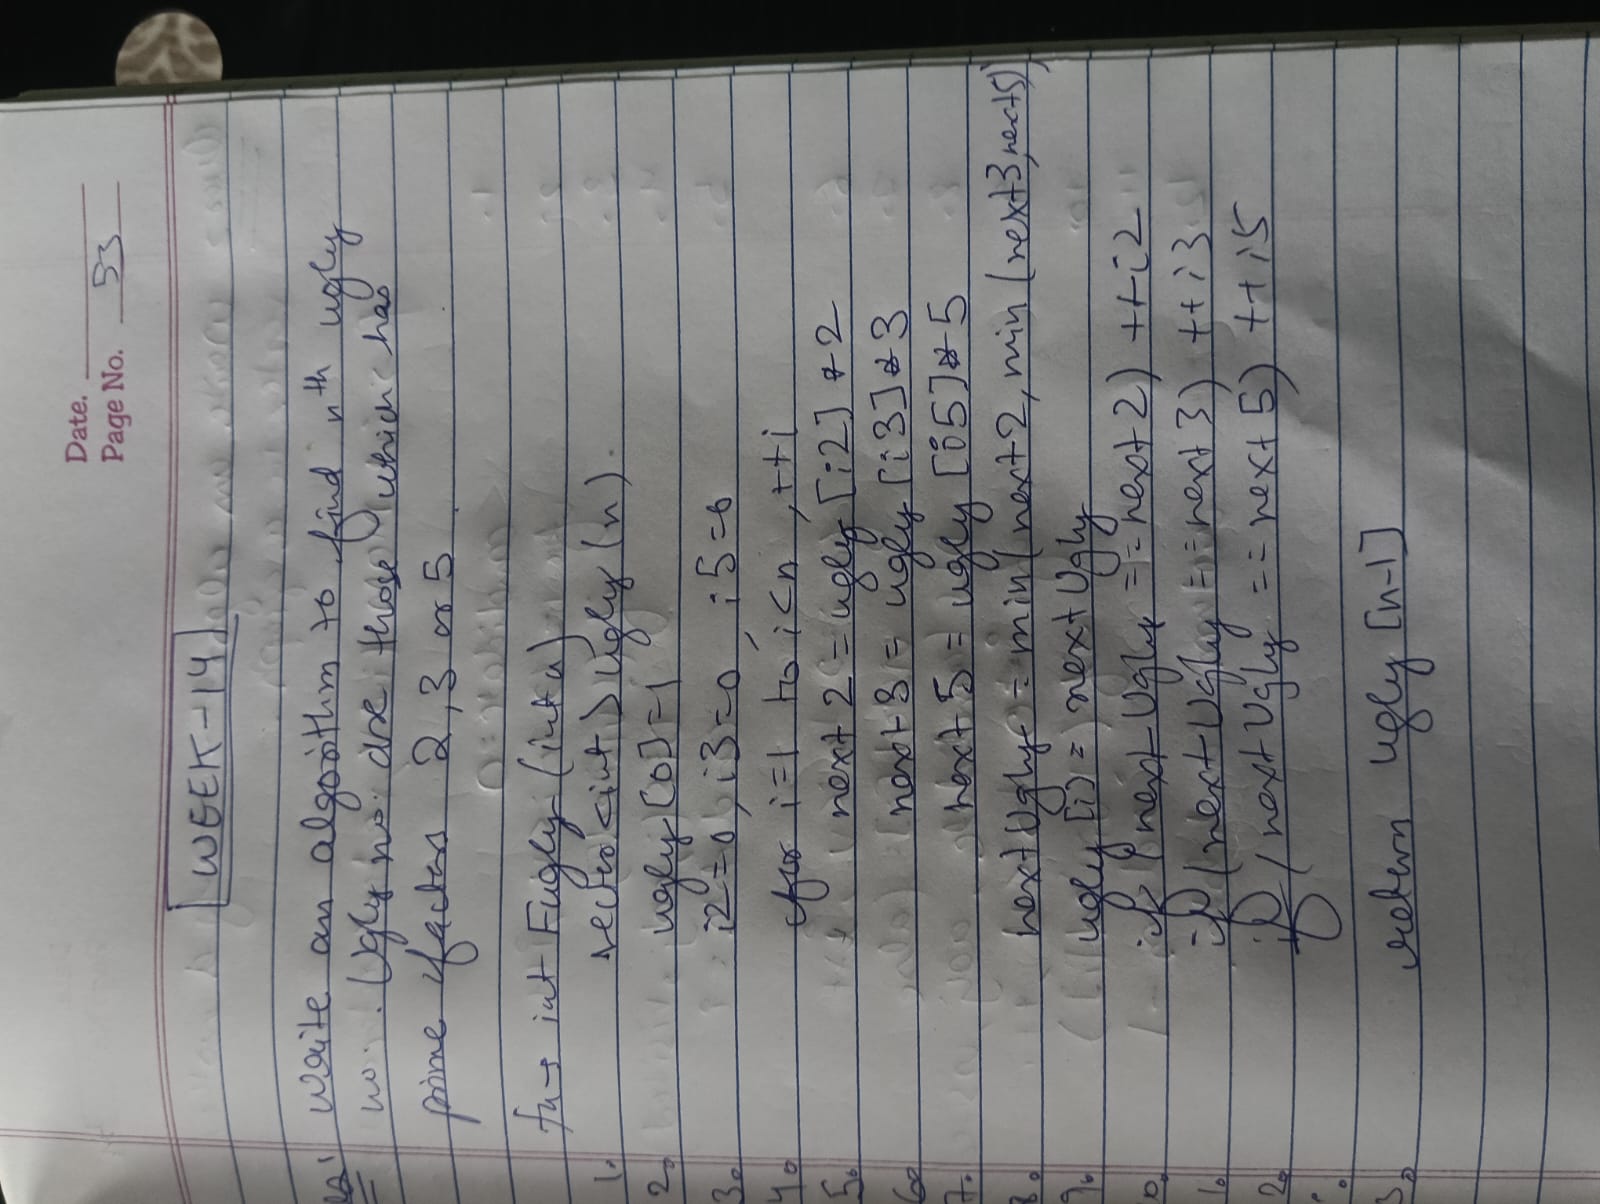 Date.
Page No. 53
WEEK-14
Write an algorithm to find nth ugly
no. Ugly no. are those which has
prime factors 2, 3 or 5.
fn → int Fugly (int n)
1. vector <int> ugly (n).
2. ugly [0] = 1
3. i2 = 0, i3 = 0, i5 = 0
4. for i=1 to i<n, ++i
5. next 2 = ugly [i2] * 2
6. next 3 = ugly [i3] * 3
7. next 5 = ugly [i5] * 5
8. next Ugly = min (next 2, min (next3, next5)
9. ugly [i] = next Ugly
0. if (next Ugly == next 2) ++i2
1. if (next Ugly == next 3) ++i3
2. if (next Ugly == next 5) ++i5
3. return ugly [n-1]